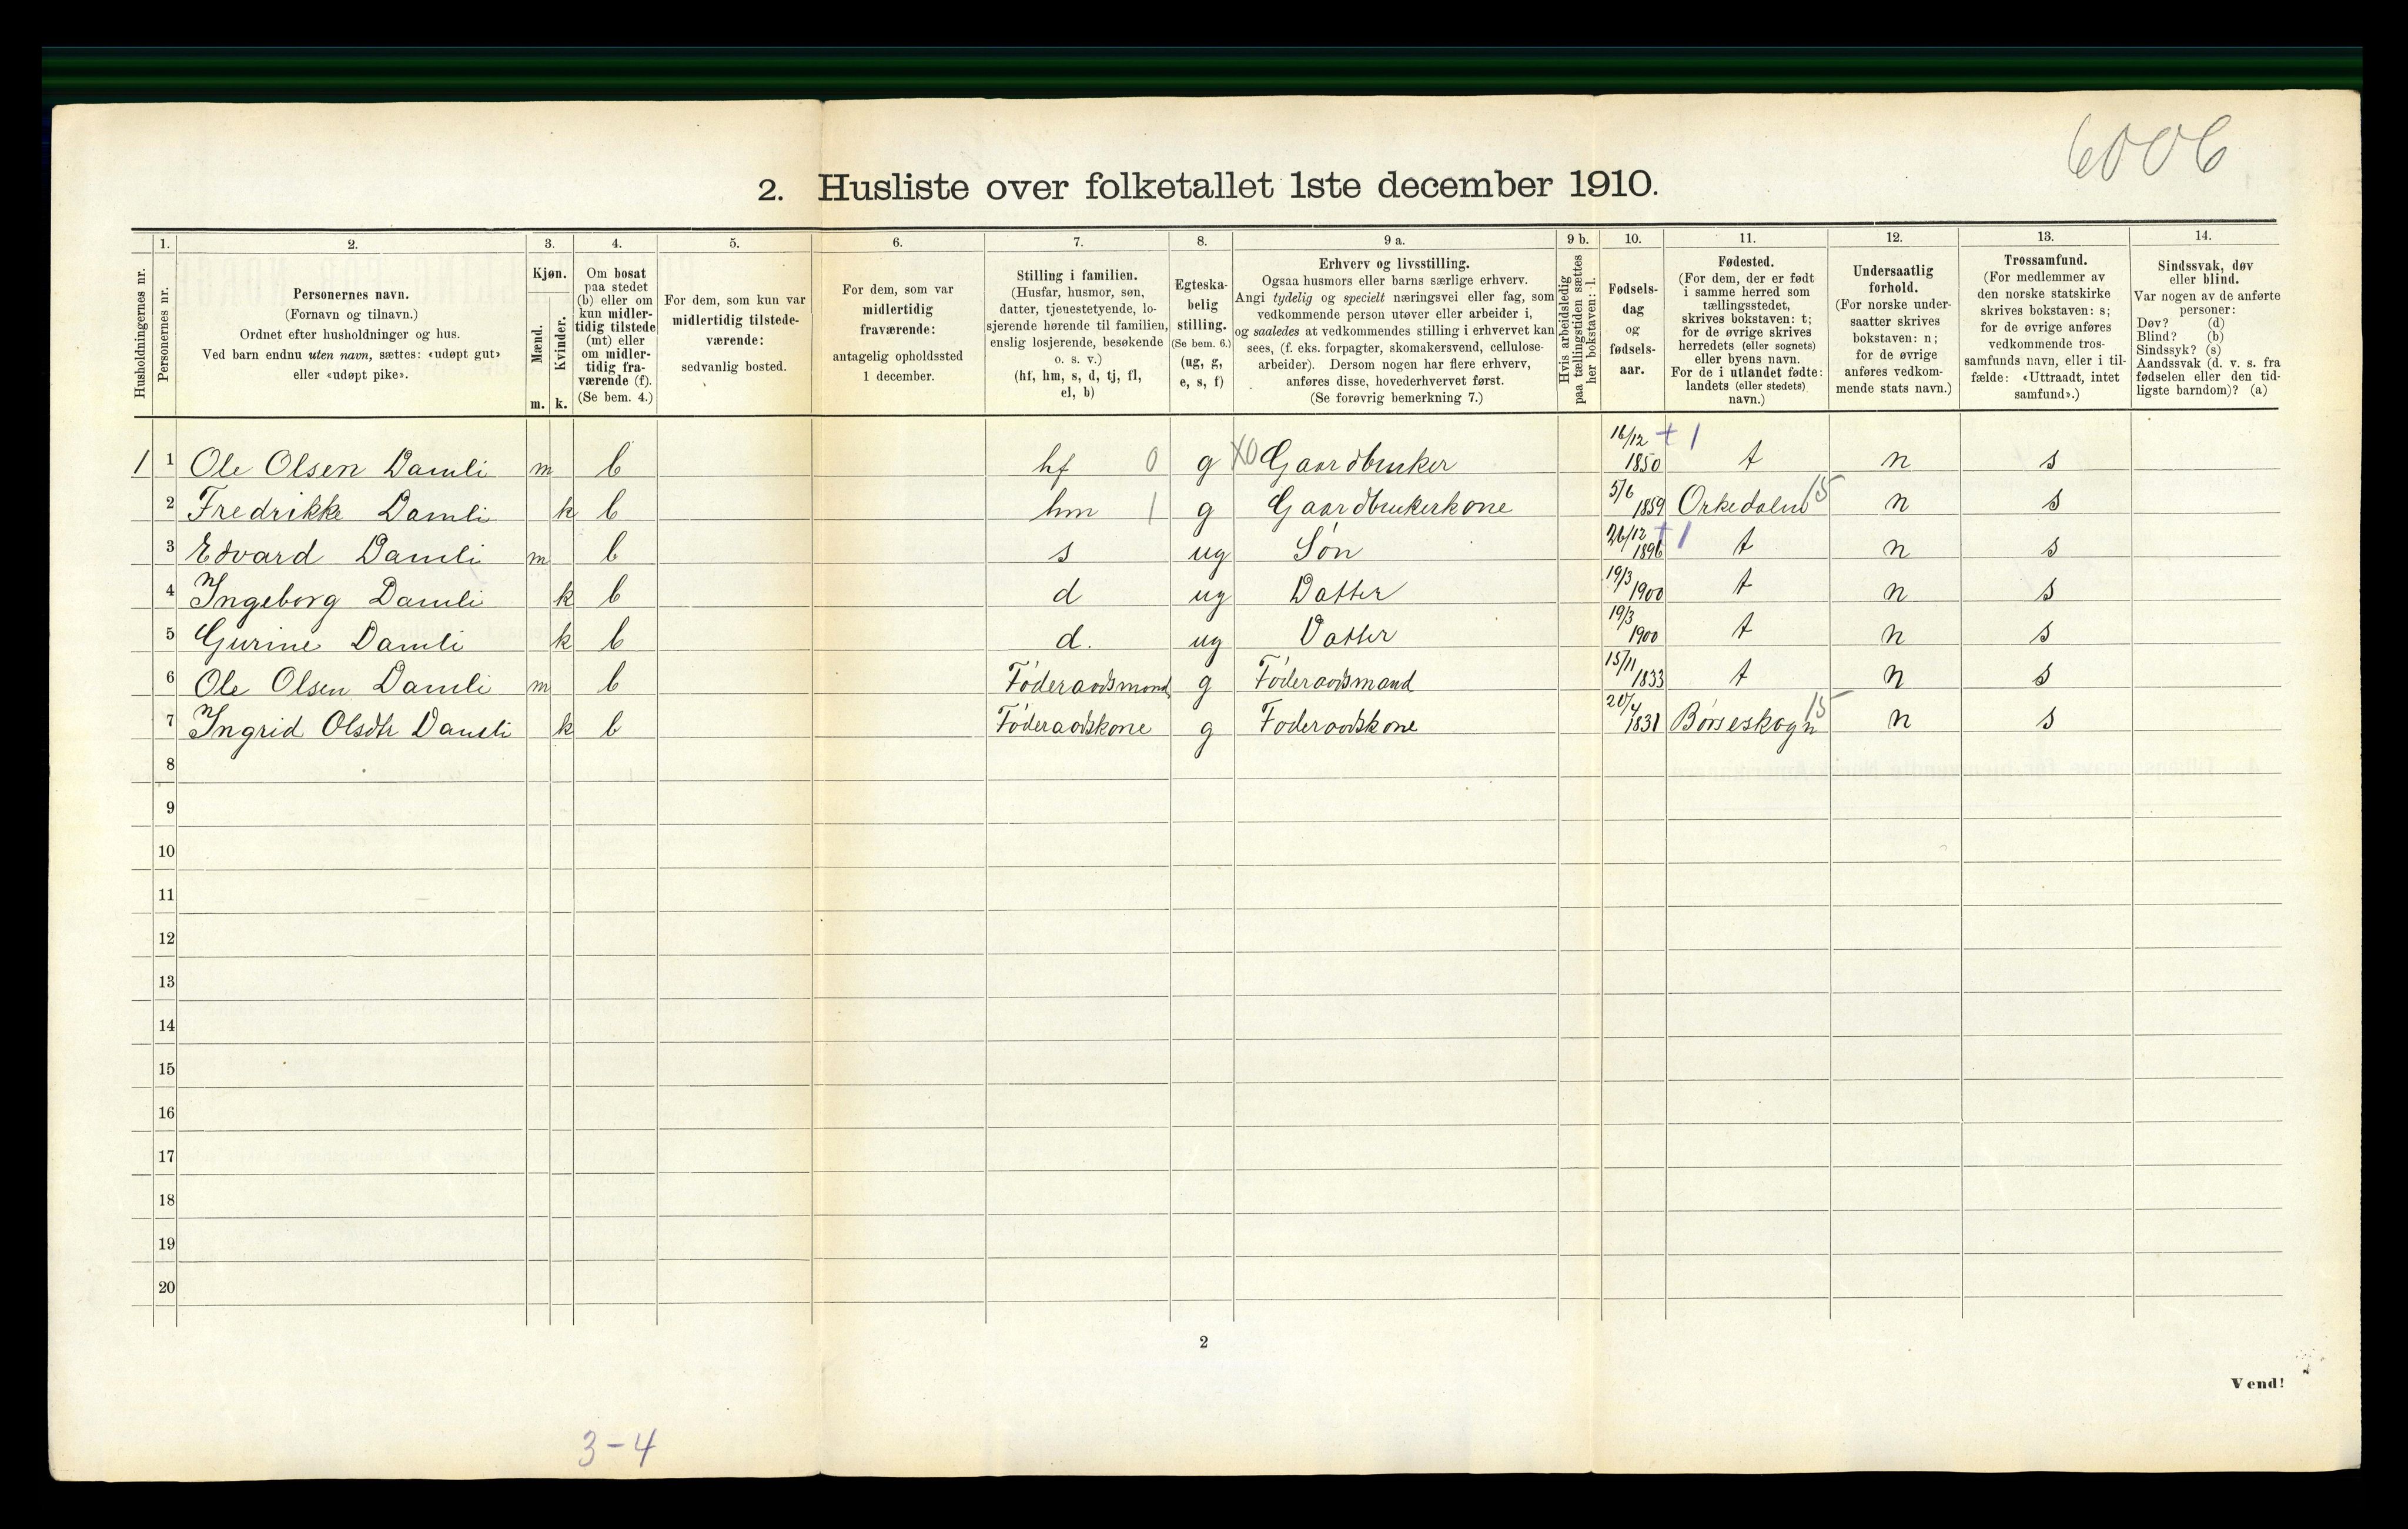 6006
2. Husliste over folketallet 1ste december 1910.
Husholdningernes nr.
1.
Personernes nr.
2.
Personernes navn.
(Fornavn og tilnavn.)
Ordnet efter husholdninger og hus.
Ved barn endnu uten navn, sættes: «udøpt gut»
eller «udøpt pike».
3.
Kjøn.
Mænd.
Kvinder.
m. k.
4.
Om bosat
paa stedet
(b) eller om
kun midler-
tidig tilstede
(mt) eller
om midler-
tidig fra-
værende (f).
(Se bem. 4.)
5.
For dem, som kun var
midlertidig tilstede-
værende:
sedvanlig bosted.
6.
For dem, som var
midlertidig
fraværende:
antagelig opholdssted
1 december.
7.
Stilling i familien.
(Husfar, husmor, søn,
datter, tjenestetyende, lo-
sjerende hørende til familien,
enslig losjerende, besøkende
o. s. v.)
(hf, hm, s, d, tj, fl,
el, b)
8.
Egteska-
belig
stilling.
(Se bem. 6.)
(ug, g,
e, s, f)
9 a.
Erhverv og livsstilling.
Ogsaa husmors eller barns særlige erhverv.
Angi tydelig og specielt næringsvei eller fag, som
vedkommende person utøver eller arbeider i,
og saaledes at vedkommendes stilling i erhvervet kan
sees, (f. eks. forpagter, skomakersvend, cellulose-
arbeider). Dersom nogen har flere erhverv,
anføres disse, hovederhvervet først.
(Se forøvrig bemerkning 7.)
9 b.
Hvis arbeidsledig
paa tællingstiden sættes
her bokstaven: l.
10.
Fødsels-
dag
og
fødsels-
aar.
11.
Fødested.
(For dem, der er født
i samme herred som
tællingsstedet,
skrives bokstaven: t;
for de øvrige skrives
herredets (eller sognets)
eller byens navn.
For de i utlandet fødte:
landets (eller stedets)
navn.)
12.
Undersaatlig
forhold.
(For norske under-
saatter skrives
bokstaven: n;
for de øvrige
anføres vedkom-
mende stats navn.)
13.
Trossamfund.
(For medlemmer av
den norske statskirke
skrives bokstaven: s;
for de øvrige anføres
vedkommende tros-
samfunds navn, eller i til-
fælde: «Uttraadt, intet
samfund».)
14.
Sindssvak, døv
eller blind.
Var nogen av de anførte
personer:
Døv? (d)
Blind? (b)
Sindssyk? (s)
Aandssvak (d. v. s. fra
fødselen eller den tid-
ligste barndom)? (a)
1 1 Ole Olsen Damli m b hf 0 g X0 Gaardbruker 16/12 1850 + 1 t n s
2 Fredrikke Damli k b hm 1 g Gaardbrukerkone 5/6 1859 Orkedalen 15 n s
3 Edvard Damli m b s ug Søn 26/12 1896 + 1 t n s
4 Ingeborg Damli k b d ug Datter 19/3 1900 t n s
5 Gurine Damli k b d. ug Datter 19/3 1900 t n s
6 Ole Olsen Damli m b Föderaadsmand g Föderaadsmand 15/11 1833 t n s
7 Ingrid Olsdtr Damli k b Föderaadskone g Foderaadskone 20/4 1831 Börseskogn 15 n s
8
9
10
11
12
13
14
15
16
17
18
19
20
2
Vend!
3-4